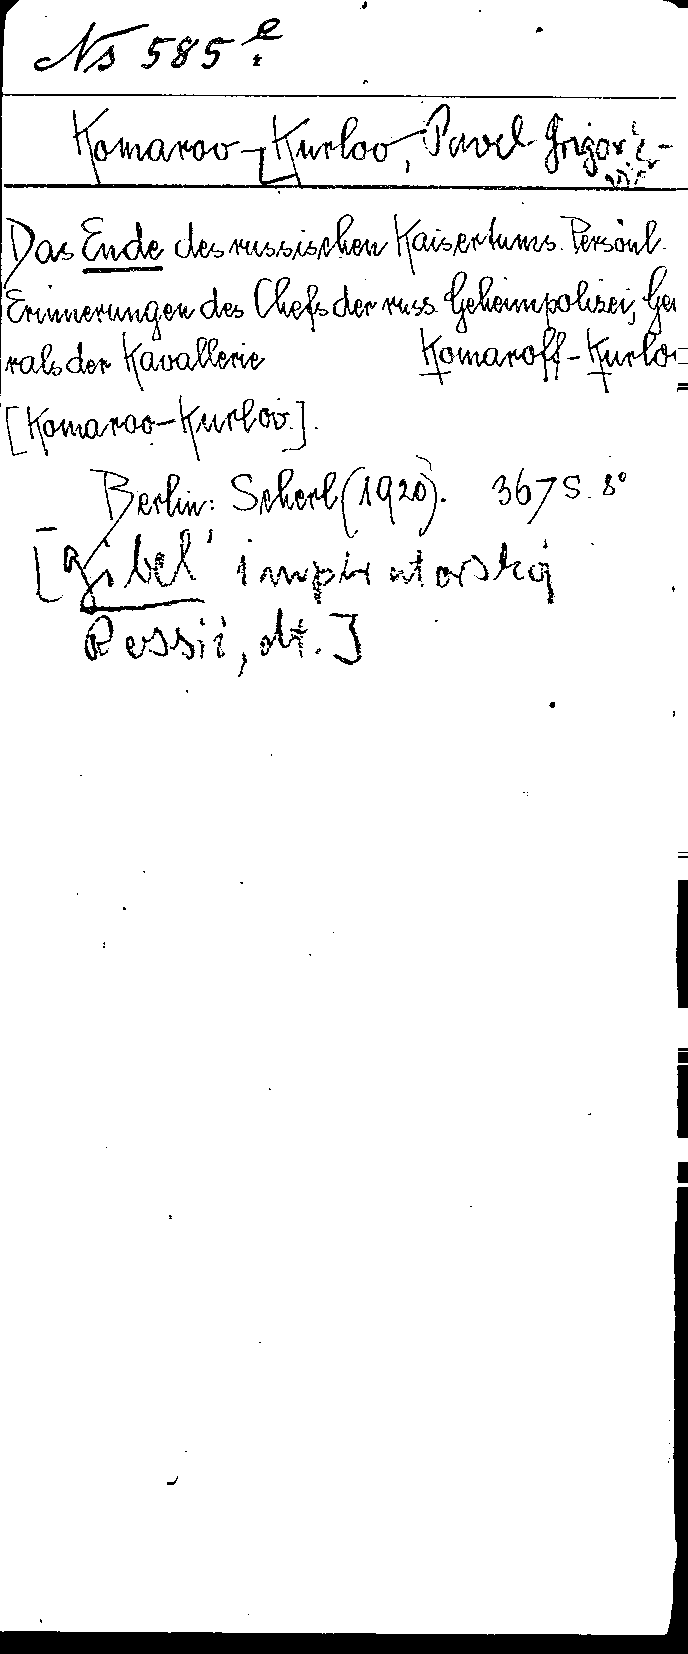 Ns 585 e.
Komarov-Kurlov, Pavel Grigor'e-
vič
Das Ende des russischen Kaisertums. Persönl.
Erinnerungen des Chefs der russ. Geheimpolizei, Ge
rals der Kavallerie Komaroff-Kurlo
[Komarov-Kurlov].
Berlin: Scherl (1920). 367 S. 8°
[Gibel' imperatorskoj
Rossii, dt.]